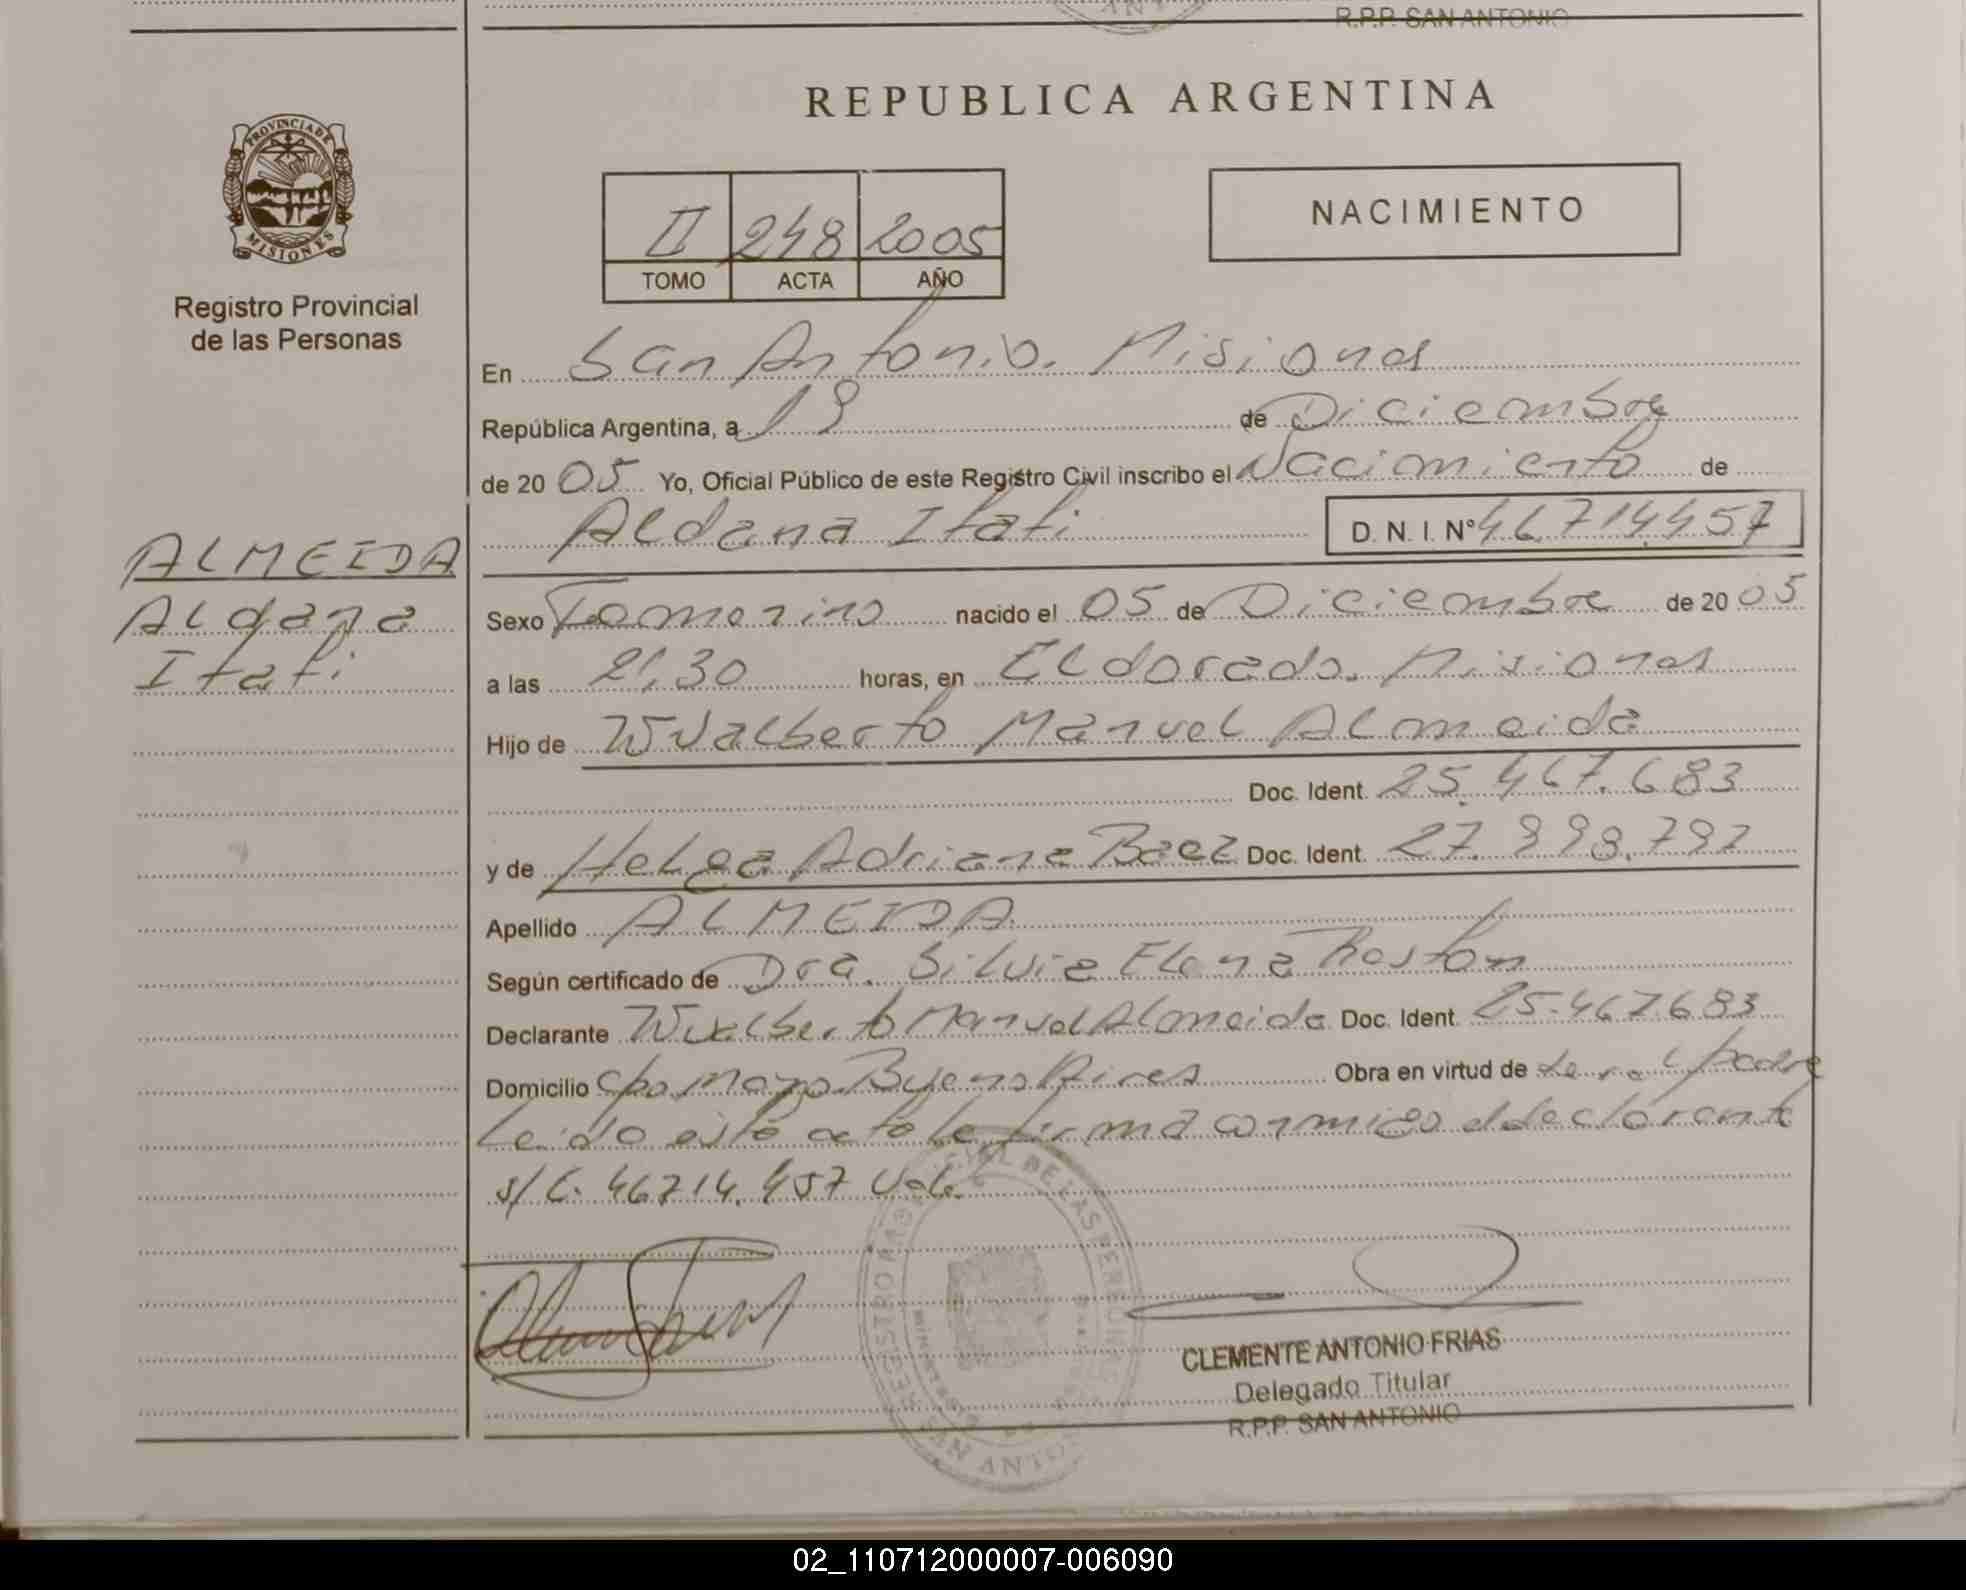 R.P.P. SAN ANTONIO
REPUBLICA ARGENTINA
PROVINCIA DE MISIONES
Registro Provincial
de las Personas
II 248 2005
TOMO ACTA AÑO
NACIMIENTO
En San Antonio. Misiones
República Argentina, a 19 de Diciembre
de 20 05 Yo, Oficial Público de este Registro Civil inscribo el Nacimiento de
Aldana Itati D. N. I. Nº 46.714.457
ALMEIDA
Aldana
Itati
Sexo Femenino nacido el 05 de Diciembre de 20 05
a las 21,30 horas, en Eldorado. Misiones
Hijo de Wualberto Manuel Almeida
Doc. Ident. 25.467.683
y de Helga Adriana Baez Doc. Ident. 27.998.797
Apellido ALMEIDA.
Según certificado de Dra. Silvia Elena Roston
Declarante Wualberto Manuel Almeida Doc. Ident. 25.467.683
Domicilio Buenos Aires Obra en virtud de padre
Leido este acta la firma conmigo el declarante
s/c. 46714.457 Vale
REGISTRO PROVINCIAL DE LAS PERSONAS
SAN ANTONIO
CLEMENTE ANTONIO FRIAS
Delegado Titular
R.P.P. SAN ANTONIO
02_110712000007-006090